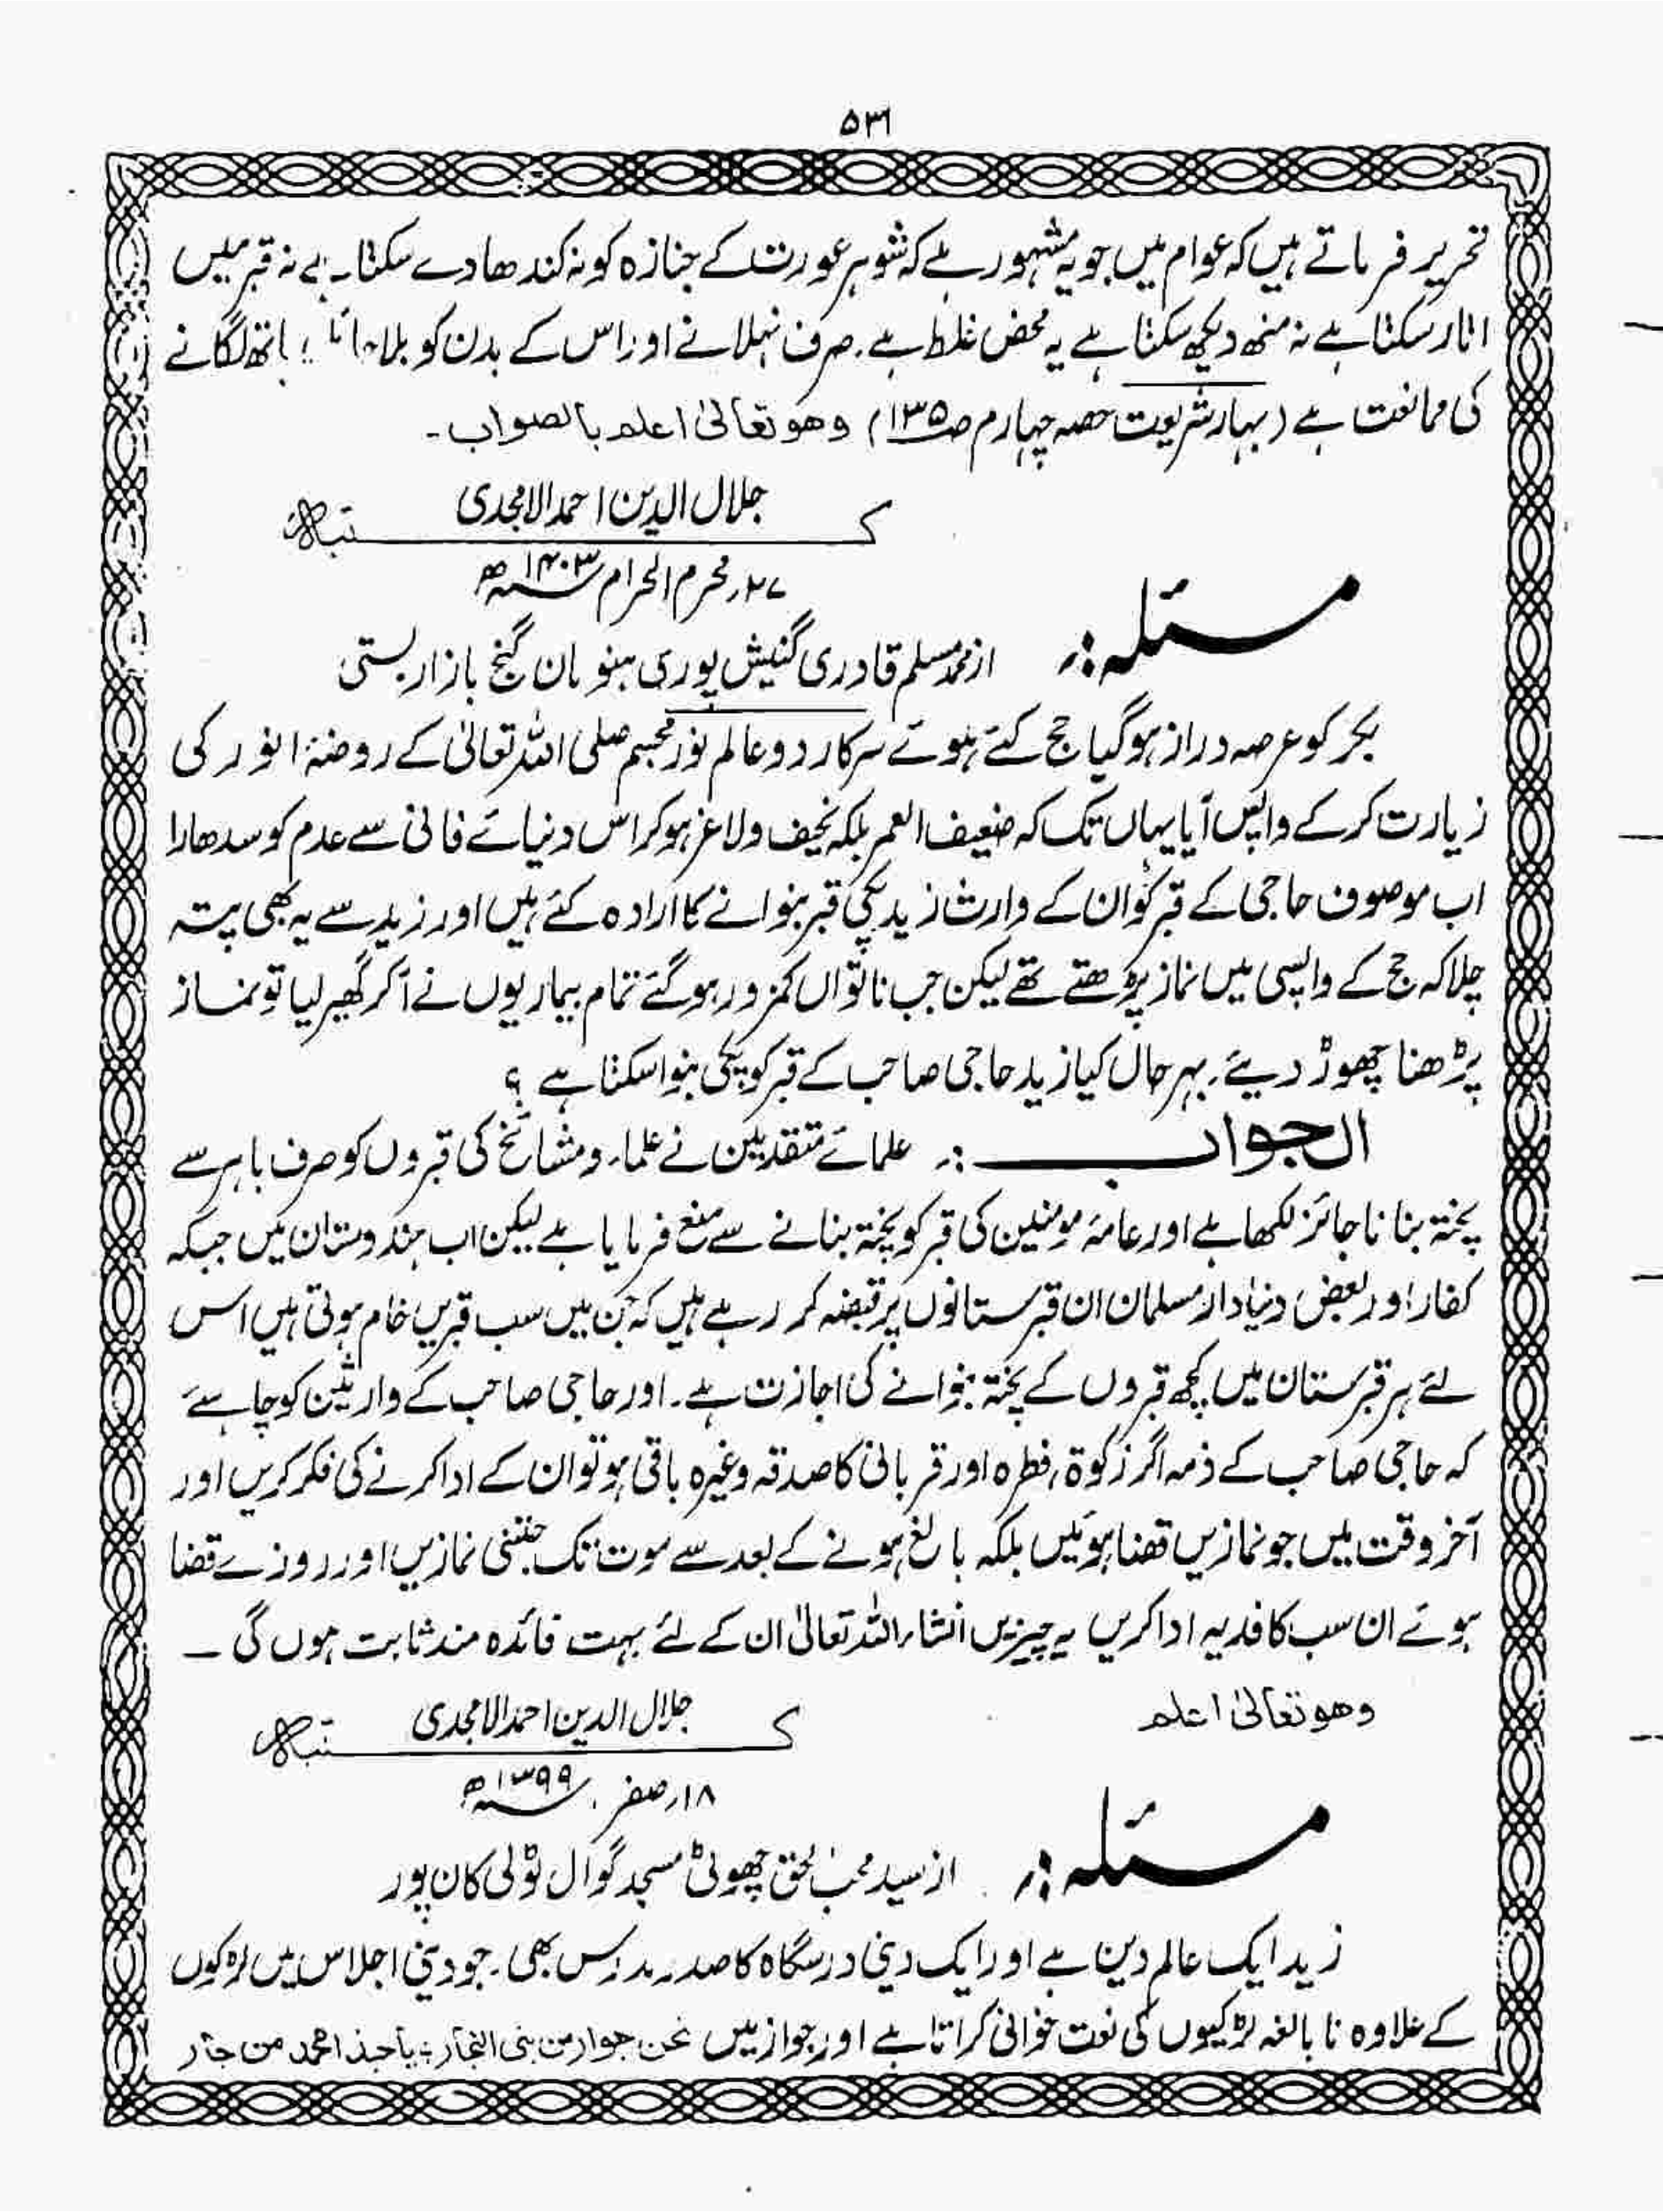 ۵۳۱
تحریر فرماتے ہیں کہ عوام میں جو یہ مشہور ہے کہ شوہر عورت کے جنازہ کو نہ کندھا دے سکتا ہے نہ قبر میں
اتار سکتا ہے نہ منھ دیکھ سکتا ہے یہ محض غلط ہے۔ صرف نہلانے اور اس کے بدن کو بلا حائل ہاتھ لگانے
کی ممانعت ہے (بہار شریعت حصہ چہارم ص۱۳۵) وھو تعالیٰ اعلم بالصواب۔
جلال الدین احمد الامجدی
کتبہ
۲۷؍محرم الحرام ۱۴۰۳ھ
مسئلہ:۔ از محمد مسلم قادری گنیش پوری ہنومان گنج بازار بستی
بکر کو عرصہ دراز ہوگیا حج کئے ہوئے سرکار دو عالم نور مجسم صلی اللہ تعالیٰ کے روضۂ انور کی
زیارت کرکے واپس آیا یہاں تک کہ ضعیف العمر بلکہ نحیف ولاغر ہوکر اس دنیائے فانی سے عدم کو سدھارا
اب موصوف حاجی کے قبر کو ان کے وارث زید پکی قبر بنوانے کا ارادہ کئے ہیں اور زید سے یہ بھی پتہ
چلا کہ حج کے واپسی میں نماز پڑھتے تھے لیکن جب ناتواں کمزور ہوگئے تمام بیماریوں نے آکر گھیر لیا تو نماز
پڑھنا چھوڑ دیئے۔ بہر حال کیا زید حاجی صاحب کے قبر کو پکی بنوا سکتا ہے ؟
الجواب:۔ علمائے متقدمین نے علماء و مشائخ کی قبروں کو صرف باہر سے
پختہ بنانا جائز لکھا ہے اور عامۂ مومنین کی قبر کو پختہ بنانے سے منع فرمایا ہے لیکن اب ہندوستان میں جبکہ
کفار اور بعض دنیادار مسلمان ان قبرستانوں پر قبضہ کر رہے ہیں کہ جن میں سب قبریں خام ہوتی ہیں اس
لئے ہر قبرستان میں کچھ قبروں کے پختہ بنوانے کی اجازت ہے۔ اور حاجی صاحب کے وارثین کو چاہئے
کہ حاجی صاحب کے ذمہ اگر زکوۃ، فطرہ اور قربانی کا صدقہ وغیرہ باقی ہو تو ان کے ادا کرنے کی فکر کریں اور
آخر وقت میں جو نمازیں قضا ہوئیں بلکہ بالغ ہونے کے بعد سے موت تک جتنی نمازیں اور روزے قضا
ہوئے ان سب کا فدیہ ادا کریں یہ چیزیں انشاء اللہ تعالیٰ ان کے لئے بہت فائدہ مند ثابت ہوں گی ۔
وھو تعالیٰ اعلم
جلال الدین احمد الامجدی
کتبہ
۱۸؍صفر ۱۳۹۹ھ
مسئلہ:۔ از سید محب الحق چھوٹی مسجد گوال ٹولی کان پور
زید ایک عالم دین ہے اور ایک دینی درسگاہ کا صدر مدرس بھی۔ جو دینی اجلاس میں لڑکوں
کے علاوہ نا بالغہ لڑکیوں کی نعت خوانی کراتا ہے اور جواز میں نحن جوار من بنی النجار ؛ یا حبذا احمد من جار